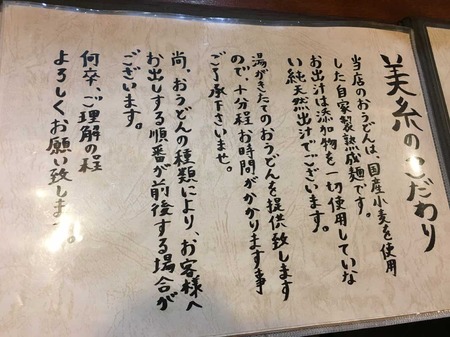 美糸のこだわり
当店のおうどんは、国産小麦を使用
した自家製熟成麺です。
お出汁は添加物を一切使用していな
い純天然出汁でございます。
湯がきたてのおうどんを提供致します
ので、十分程お時間がかかります事
ご了承下さいませ。
尚、おうどんの種類により、お客様へ
お出しする順番が前後する場合が
ございます。
何卒、ご理解の程
よろしくお願い致します。